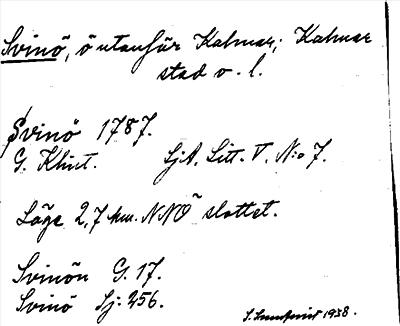 Svinö, ö utanför Kalmar; Kalmar
stad o. l.
Svinö 1787.
G. Klint. SjA. Litt. V. No 7.
Läge 2,7 km. NNO slottet.
Svinön G. 17.
Svinö Sj: 256.
1938.